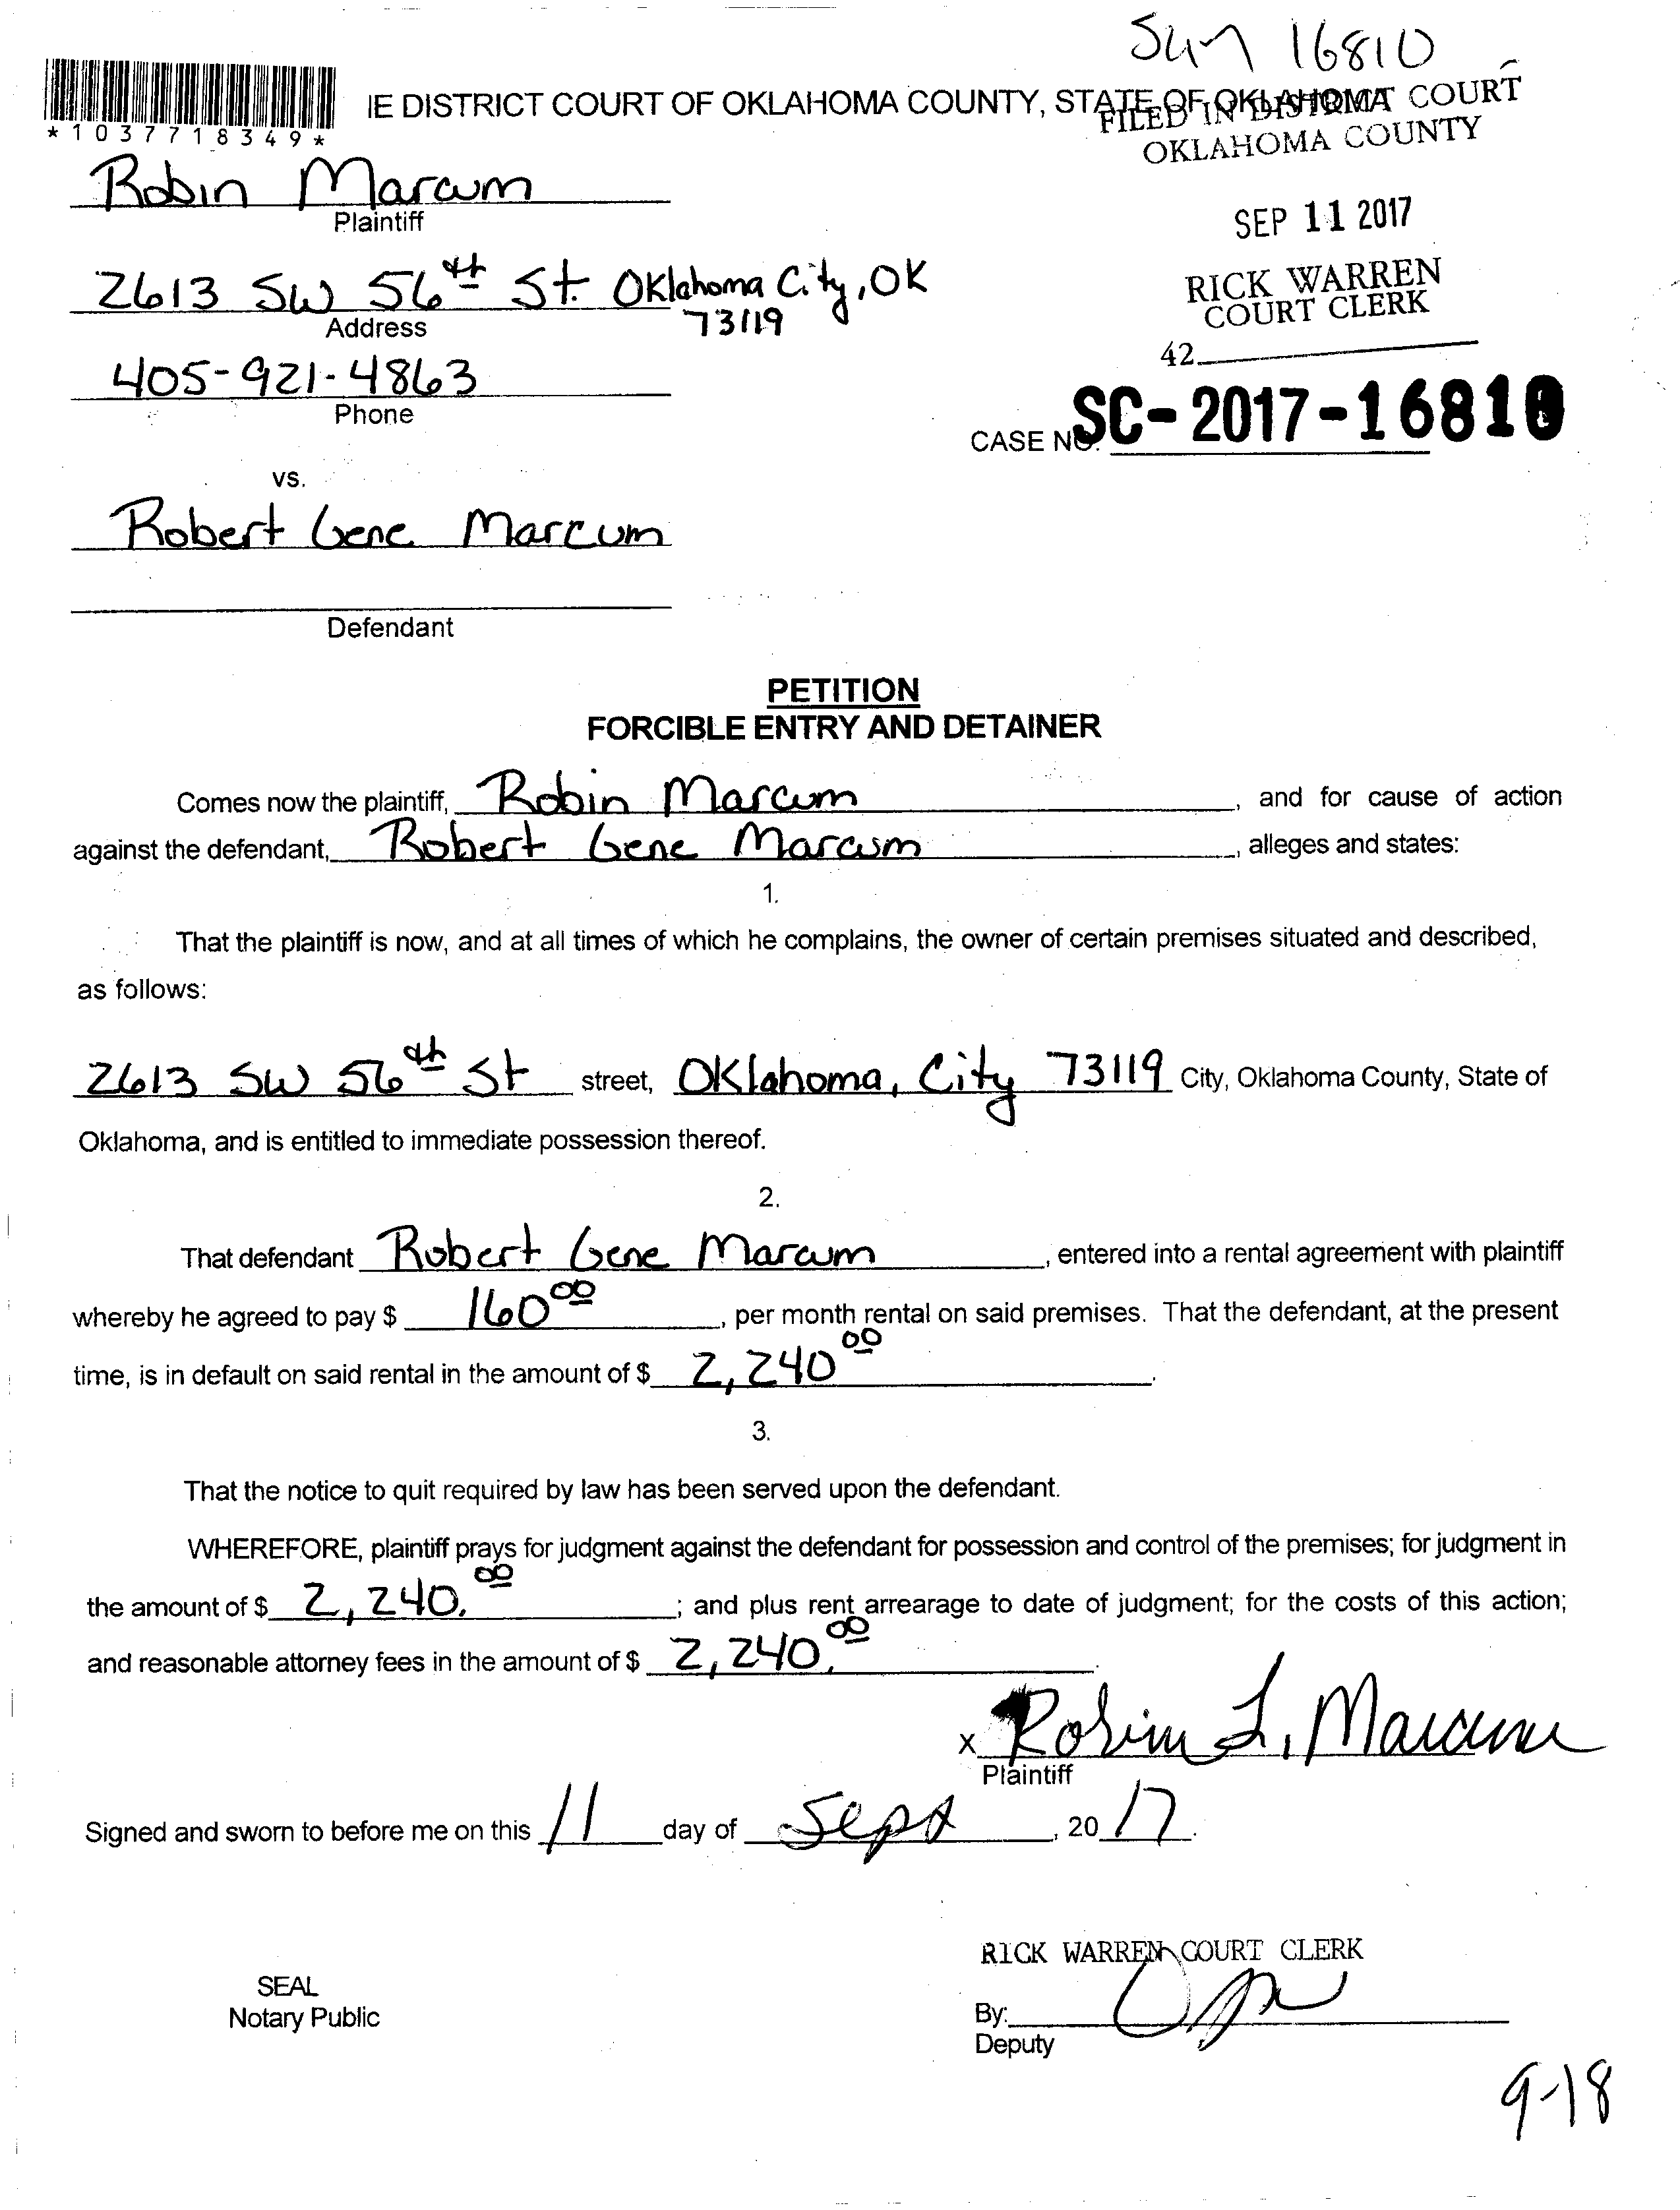 Sun 16810
IE DISTRICT COURT OF OKLAHOMA COUNTY, STATE OF OKLAHOMA
FILED IN DISTRICT COURT
OKLAHOMA COUNTY
*1037718349*
Robin Marcum
Plaintiff
SEP 11 2017
2613 SW 56th St. Oklahoma City, OK
73119
Address
RICK WARREN
COURT CLERK
42
405-921-4863
Phone
CASE NO. SC-2017-16810
vs.
Robert Gene Marcum
Defendant
PETITION
FORCIBLE ENTRY AND DETAINER
Comes now the plaintiff, Robin Marcum, and for cause of action
against the defendant, Robert Gene Marcum, alleges and states:
1.
That the plaintiff is now, and at all times of which he complains, the owner of certain premises situated and described,
as follows:
2613 SW 56th St street, Oklahoma, City 73119 City, Oklahoma County, State of
Oklahoma, and is entitled to immediate possession thereof.
2.
That defendant Robert Gene Marcum, entered into a rental agreement with plaintiff
whereby he agreed to pay $ 160 00, per month rental on said premises. That the defendant, at the present
time, is in default on said rental in the amount of $ 2,240 00.
3.
That the notice to quit required by law has been served upon the defendant.
WHEREFORE, plaintiff prays for judgment against the defendant for possession and control of the premises; for judgment in
the amount of $ 2,240. 00; and plus rent arrearage to date of judgment; for the costs of this action;
and reasonable attorney fees in the amount of $ 2,240. 00.
x Robin L. Marcum
Plaintiff
Signed and sworn to before me on this 11 day of Sept, 20 17.
RICK WARREN COURT CLERK
SEAL
Notary Public
By:
Deputy
9-18